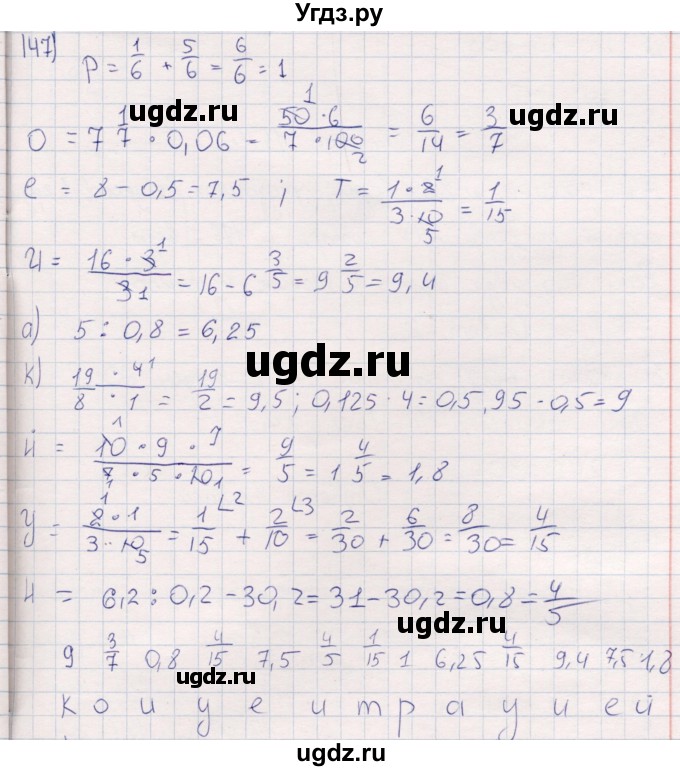 Угдз.ру
147)
P = 1/6 + 5/6 = 6/6 = 1
ugdz.ru ugdz.ru
O = 7 1/7 · 0,06 - 50·6/7·100 = 6/14 = 3/7
1 2
e = 8 - 0,5 = 7,5 ; T = 1·2/3·10 = 1/15
1 5
И = 16·3/31 = 16 - 6 3/5 = 9 2/5 = 9,4
1
а) 5 : 0,8 = 6,25
ugdz.ru
К) 19·4/8·1 = 19/2 = 9,5 ; 0,125 · 4 = 0,5 , 95 - 0,5 = 9
1
й = 10·9·7/7·5·10 = 9/5 = 1 4/5 = 1,8
У = 2·1/3·10 = 1/15 + 2/10 = 2/30 + 6/30 = 8/30 = 4/15
1 5 2 3
Н = 6,2 : 0,2 - 30,2 = 31 - 30,2 = 0,8 = 4/5
ugdz.ru
9 3/7 0,8 4/15 7,5 4/5 1/15 1 6,25 4/15 9,4 7,5 1,8
ugdz.ru
к о н у е н т р а у и е й
ugdz.ru